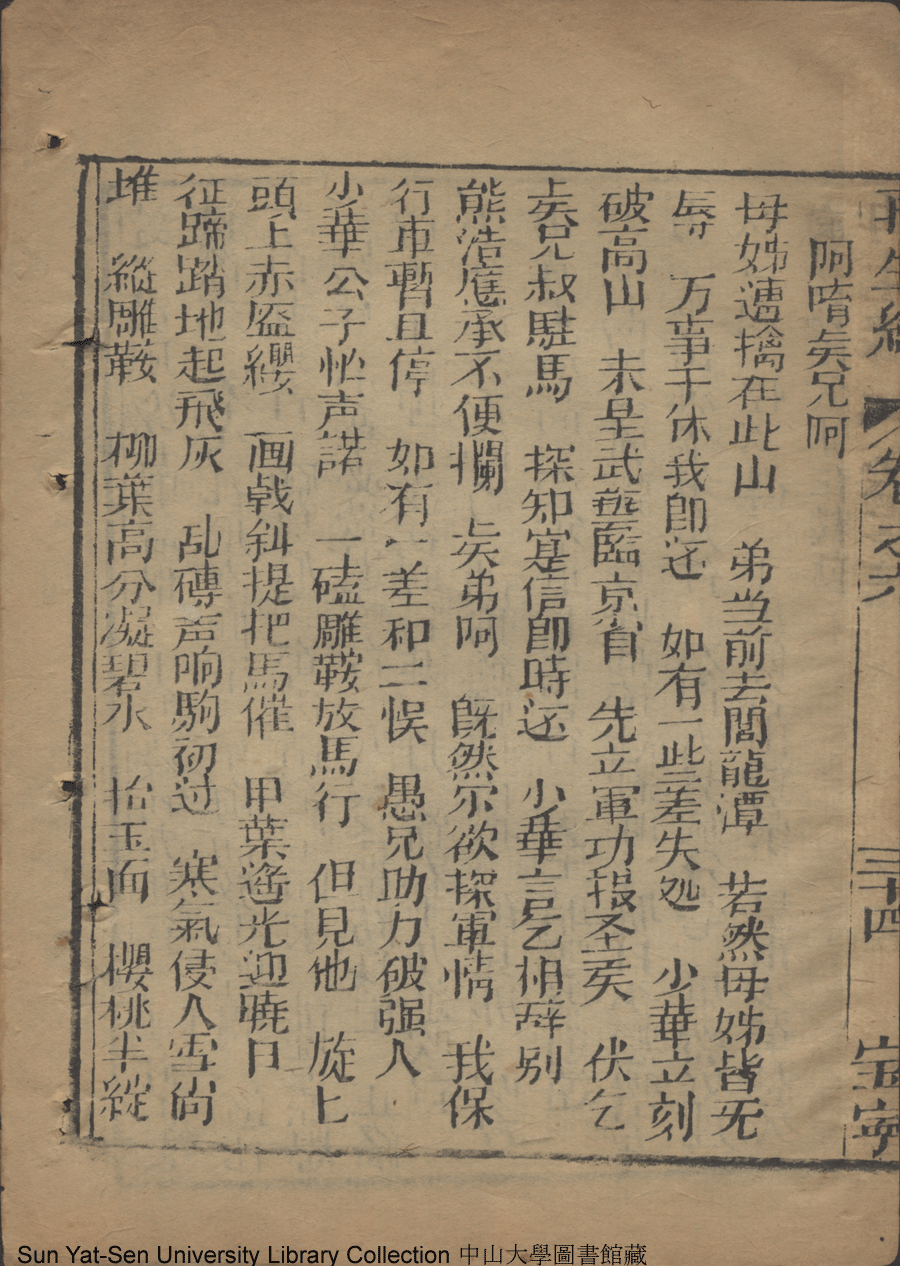 再生緣 卷之六 三十四 宝寧
阿唷矣兄阿
母姊遭擒在此山 弟当前去閙龍潭 若然母姊皆无
辱 万事干休我即还 如有一些差失処 少華立刻
破高山 未至武塲臨京省 先立軍功报圣矣 伏乞
矣兄叔駐馬 探知寔信即時还 小華言乞相辞别
熊浩應承不便攔 矣弟阿 旣然尔欲探軍情 我保
行車暫且停 如有一差和二悮 愚兄助力破强人
少華公子忙声諾 一磕雕鞍放馬行 但見他 旋上
頭上赤盔纓 画戟斜提把馬催 甲葉遙光迎曉日
征蹄踏地起飛灰 乱磚声响駒初过 寒氣侵人雪尚
堆 縱雕鞍 柳葉高分凝碧水 抬玉面 櫻桃半綻
Sun Yat-Sen University Library Collection 中山大學圖書館藏